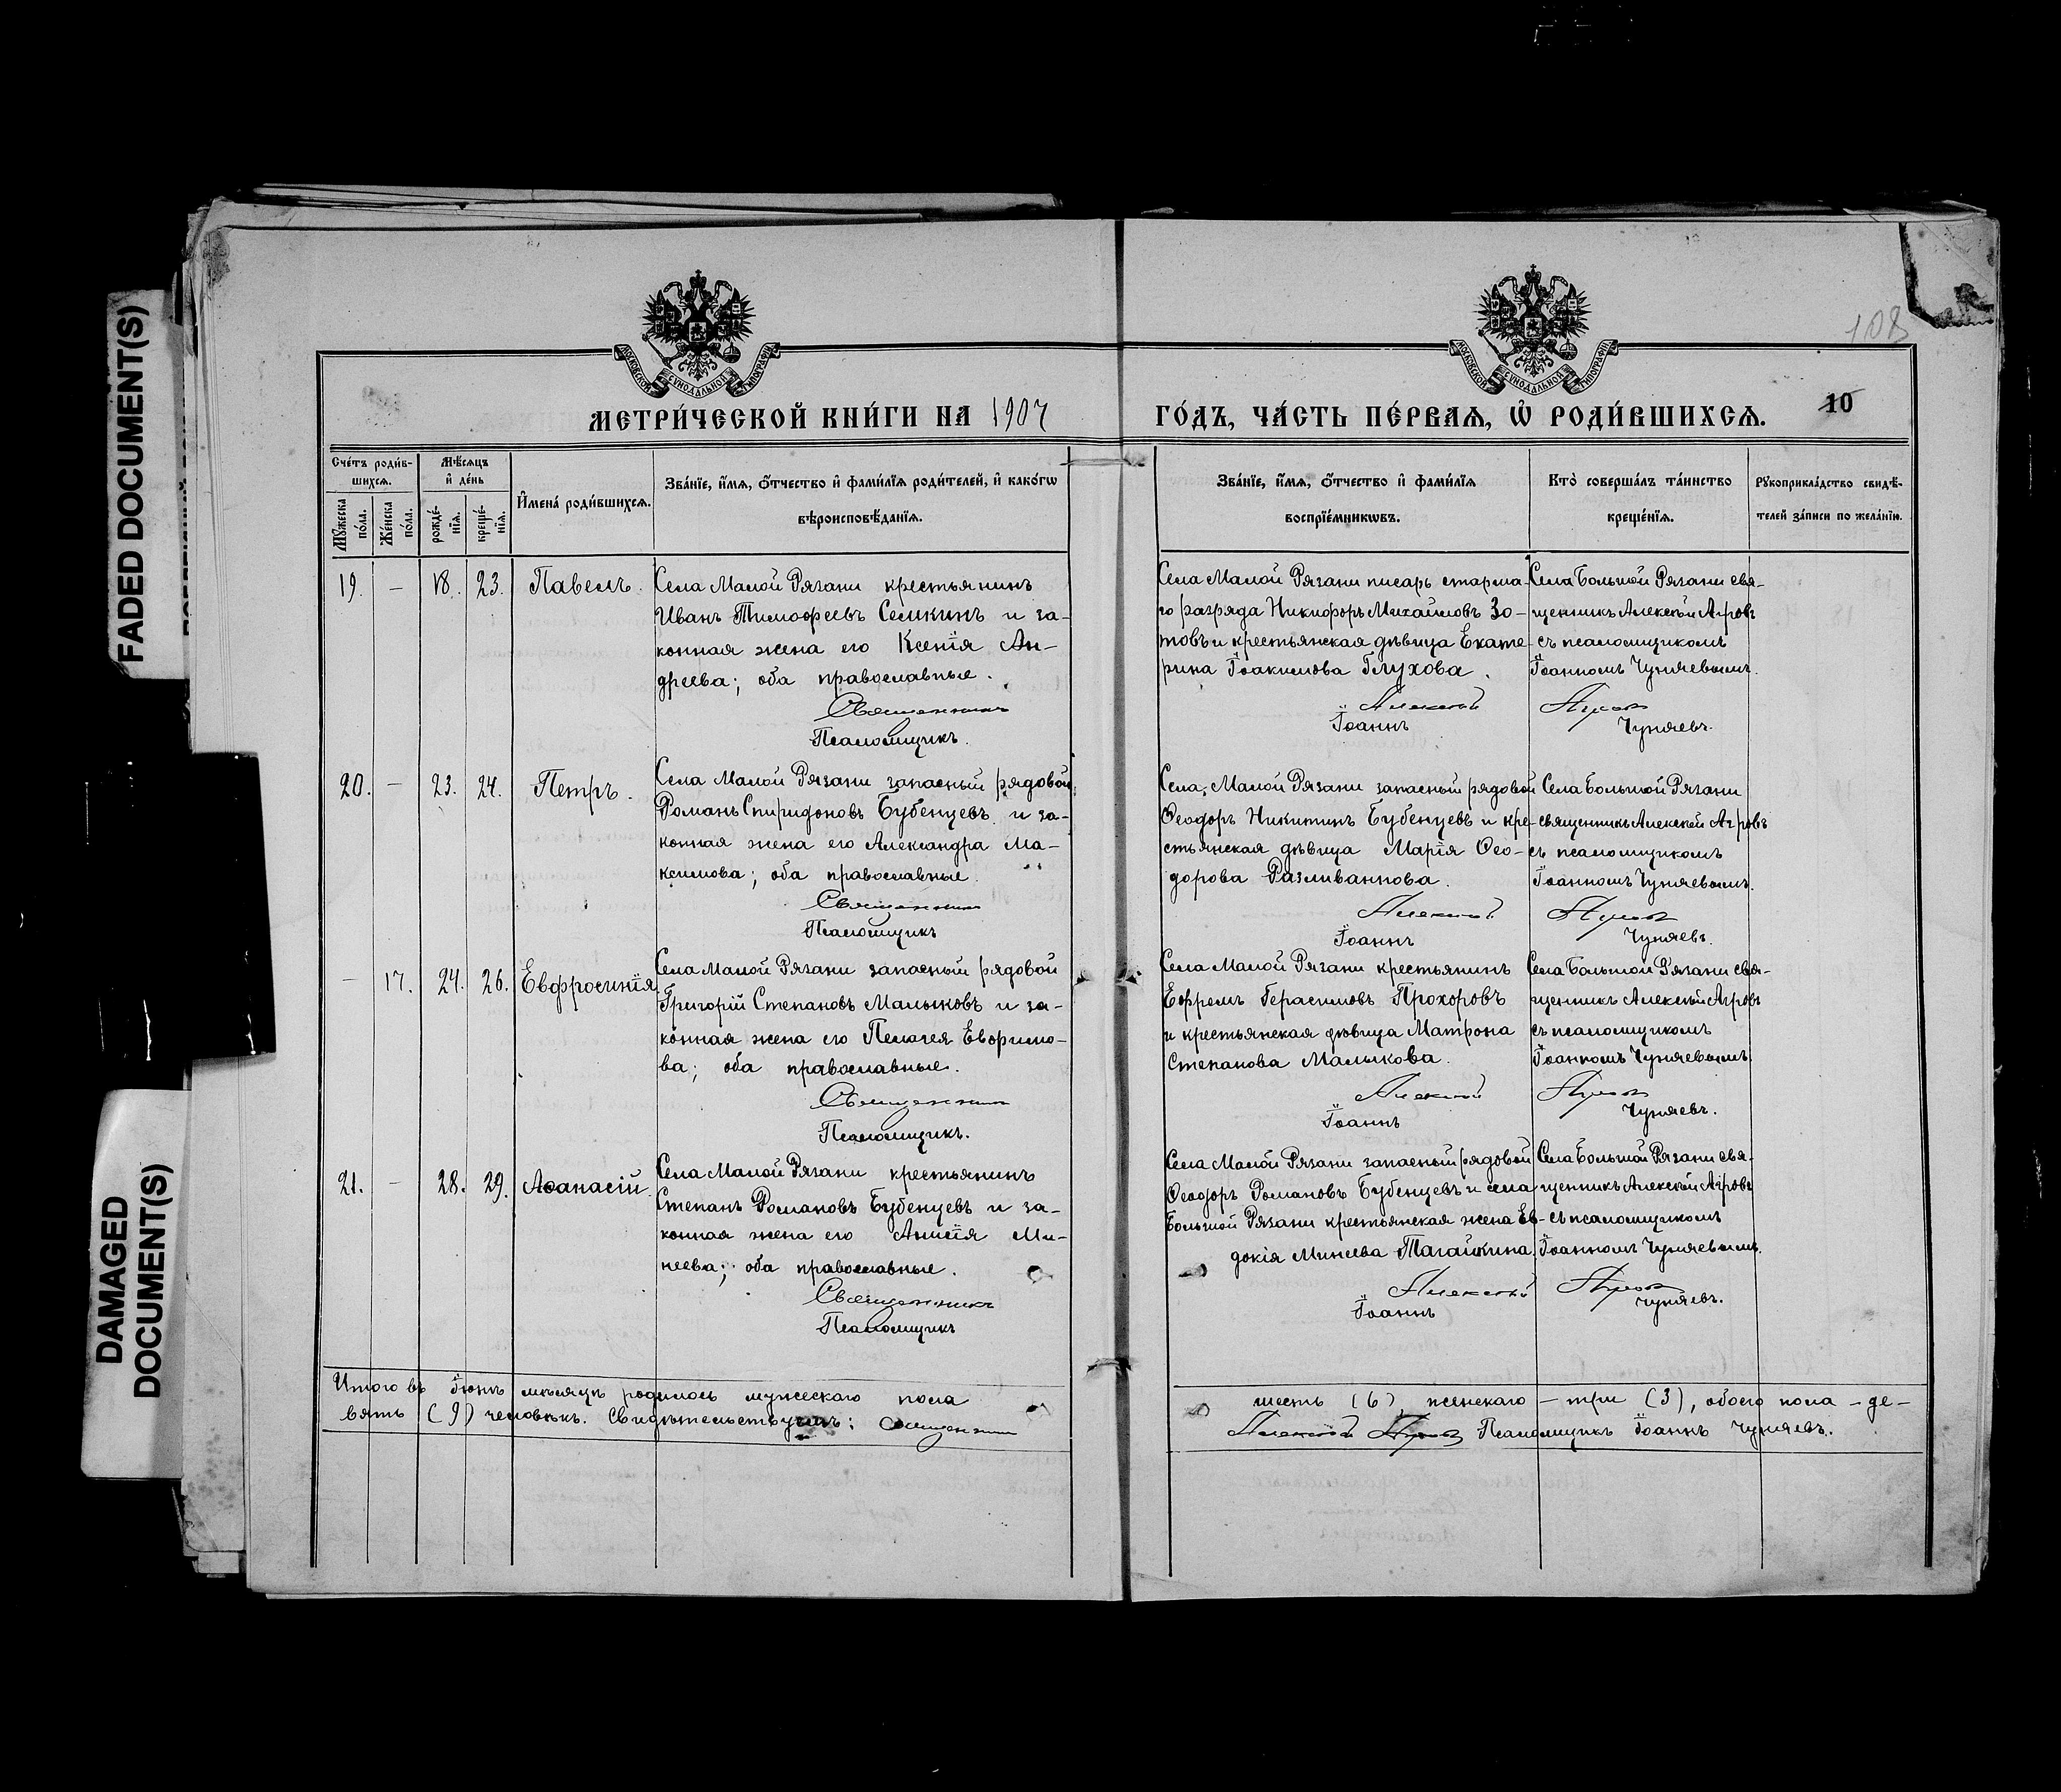 FADED DOCUMENT(S)
DAMAGED
DOCUMENT(S)
МОСКОВСКОЙ СѴНОДАЛЬНОЙ ТИПОГРАФІИ
МОСКОВСКОЙ СѴНОДАЛЬНОЙ ТИПОГРАФІИ
108
МЕТРИ́ЧЕСКОЙ КНИ́ГИ НА 1907
ГО́ДЪ, ЧА́СТЬ ПЕ́РВАѦ, Ѡ҆ РОДИ́ВШИХСѦ.
10
Сче́тъ роди́в-
шихсѧ.
Мꙋ́жеска
по́ла.
Же́нска
по́ла.
Мѣ́сѧцъ
и҆ де́нь
рожде́-
нїѧ.
креще́-
нїѧ.
И҆мена̀ роди́вшихсѧ.
Зва́нїе, и҆́мѧ, ѻ҆́тчество и҆ фами́лїѧ роди́телей, и҆ како́гѡ
вѣроисповѣ́данїѧ.
Зва́нїе, и҆́мѧ, ѻ҆́тчество и҆ фами́лїѧ
воспрїе́мникѡвъ.
Кто̀ соверша́лъ та́инство
креще́нїѧ.
Рꙋкоприкла́дство свидѣ́-
телей за́писи по жела́нїю.
19. — 18. 23. Павелъ.
Села Малой Рязани крестьянинъ
Иванъ Тимофеевъ Семкинъ и за-
конная жена его Ксенія Ан-
дреева; оба православные.
Священникъ
Псаломщикъ.
Села Малой Рязани писарь старша-
го разряда Никифоръ Михайловъ Зо-
товъ и крестьянская дѣвица Екате-
рина Іоакимова Глухова.
Алексѣй
Іоаннъ
Села Большой Рязани свя-
щенникъ Алексѣй Агровъ
съ псаломщикомъ
Іоанномъ Чуняевымъ.
Агровъ
Чуняевъ.
20. — 23. 24. Петръ.
Села Малой Рязани запасный рядовой
Романъ Спиридоновъ Бубенцевъ и за-
конная жена его Александра Ма-
ксимова; оба православные.
Священникъ
Псаломщикъ
Села Малой Рязани запасный рядовой
Ѳеодоръ Никитинъ Бубенцевъ и кре-
стьянская дѣвица Марія Ѳео-
дорова Разливаннова.
Алексѣй
Іоаннъ
Села Большой Рязани
священникъ Алексѣй Агровъ
съ псаломщикомъ
Іоанномъ Чуняевымъ.
Агровъ
Чуняевъ.
— 17. 24. 26. Евфросинія
Села Малой Рязани запасный рядовой
Григорій Степановъ Малыковъ и за-
конная жена его Пелагея Евѳимо-
ва; оба православные.
Священникъ
Псаломщикъ.
Села Малой Рязани крестьянинъ
Ефремъ Герасимовъ Прохоровъ
и крестьянская дѣвица Матрона
Степанова Малыкова.
Алексѣй
Іоаннъ
Села Большой Рязани свя-
щенникъ Алексѣй Агровъ
съ псаломщикомъ
Іоанномъ Чуняевымъ.
Агровъ
Чуняевъ.
21. — 28. 29. Аѳанасій.
Села Малой Рязани крестьянинъ
Степанъ Романовъ Бубенцевъ и за-
конная жена его Анисія Ми-
неева; оба православные.
Священникъ
Псаломщикъ
Села Малой Рязани запасный рядовой
Ѳеодоръ Романовъ Бубенцевъ и села
Большой Рязани крестьянская жена Ев-
докія Минеева Тагайкина.
Алексѣй
Іоаннъ
Села Большой Рязани свя-
щенникъ Алексѣй Агровъ
съ псаломщикомъ
Іоанномъ Чуняевымъ.
Агровъ
Чуняевъ.
Итого въ Іюнѣ мѣсяцѣ родилось мужескаго пола
шесть (6), женскаго — три (3), обоего пола — де-
вять (9) человѣкъ. Свидѣтельствуемъ: Священникъ
Алексѣй Агровъ Псаломщикъ Іоаннъ Чуняевъ.